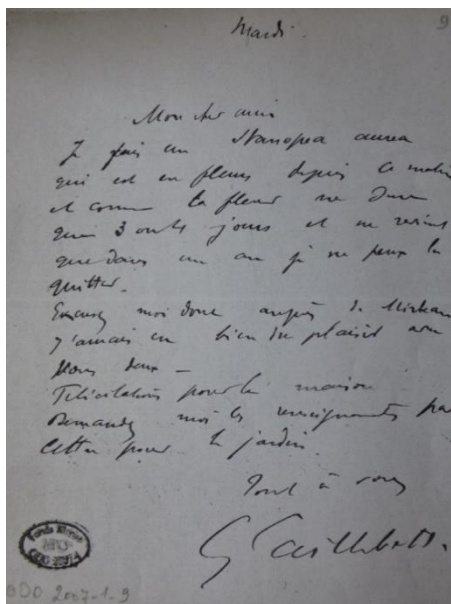 Mardi.
9
Mon cher ami
Je fais un Stanopea aurea
qui est en fleurs depuis ce matin
et comme la fleur ne dure
que 3 ou 4 jours et ne revient
que dans un an je ne peux la
quitter.
Excusez moi donc auprès de Mirbeau
J'aurais eu bien du plaisir avec
vous deux —
Félicitations pour la maison
Demandez moi les renseignements par
lettre pour le jardin.
Tout à vous
G Caillebotte.
ODO 2007-1-9